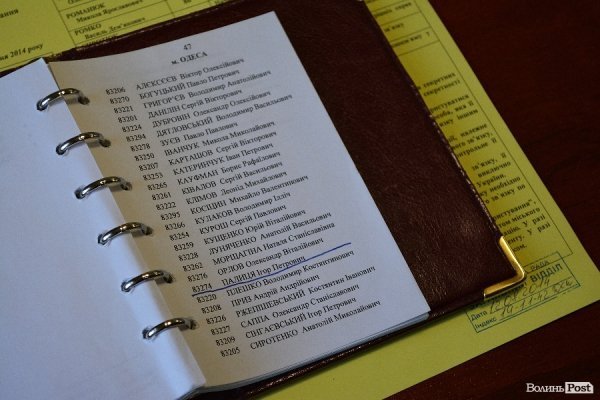 РОМАНЮК
Микола Ярославович
РОМКО
Василь Дем'янович
2014 року
47
м. ОДЕСА
83206 АЛЄКСЄЄВ Віктор Олексійович
83270 БОГУЦЬКИЙ Павло Петрович
83221 ГРИГОР'ЄВ Володимир Анатолійович
83201 ДАНІЛІН Сергій Вікторович
83224 ДУБРОВІН Олександр Олексійович
83294 ДЯТЛОВСЬКИЙ Володимир Васильович
83278 ЗУЄВ Павло Павлович
83250 ІВАНЧУК Микола Миколайович
83207 КАРТАШОВ Сергій Вікторович
83253 КАТЕРИНЧУК Іван Петрович
83265 КАУФМАН Борис Рафаїлович
83261 КІВАЛОВ Сергій Васильович
83222 КЛІМОВ Леонід Михайлович
83295 КОСІЦИН Михайло Валентинович
83266 КУДАКОВ Володимир Ілліч
83254 КУРОШ Сергій Павлович
83259 КУЩЕНКО Юрій Віталійович
83228 ЛУНЯЧЕНКО Анатолій Васильович
83262 МОРЩАГІНА Наталя Станіславівна
83276 ОРЛОВ Олександр Віталійович
83274 ПАЛИЦЯ Ігор Петрович
83220 ПЛЕШКО Володимир Костянтинович
83208 ПРИЗ Андрій Андрійович
83226 РЖЕПІШЕВСЬКИЙ Костянтин Іванович
83227 САППА Олександр Станіславович
83209 СІНГАЄВСЬКИЙ Ігор Петрович
83205 СИРОТЕНКО Анатолій Миколайович
ВІДДІЛ
Дата
Індекс
Волинь Post